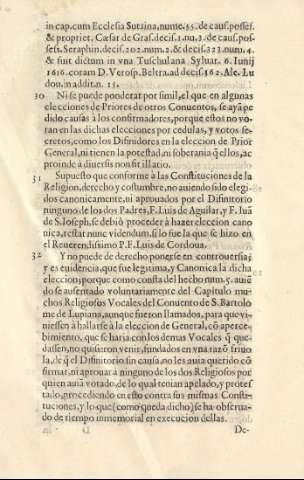 in cap. cum Ecclesia Sutrina, nume. 55. de caus. posses.
& propriet. Cæsar de Graf. decis. 1. nu. 3. de caus. pos-
sess. Seraphin. decis. 202. num. 2. & decis. 323. num. 4.
& fuit dictum in vna Tusculana Syluar. 6. Iunij
1616. coram D. Verosp. Beltra. ad decis. 162. Ale. Lu
dou. in addit. n. 15.
30 Ni se puede ponderar por simil, el que en algunas
elecciones de Priores de otros Conuentos, se aya pe
dido causas à los confirmadores, porque estos no vo-
tan en las dichas elecciones por cedulas, y votos se-
cretos, como los Difinidores en la eleccion de Prior
General, ni tienen la potestad, ni soberania q̃ ellos, ac
proinde à diuersis non fit illatio.
31 Supuesto que conforme à las Constituciones de la
Religion, derecho y costumbre, no auiendo sido elegi-
dos canonicamente, ni aprouados por el Difinitorio
ninguno de los dos Padres, F. Luis de Aguilar, y F. Iuã
de S. Ioseph, se debiò proceder à hazer eleccion cano
nica, restat nunc videndum, si lo fue la que se hizo en
el Reuerendissimo P. F. Luis de Cordoua.
32 Y no puede de derecho ponerse en controuersia;
y es euidencia, que fue legitima, y Canonica la dicha
eleccion; porque como consta del hecho num. y. auiẽ
dose ausentado voluntariamẽte del Capitulo mu-
chos Religiosos Vocales del Conuento de S. Bartolo
me de Lupiana, aunque fueron llamados, para que vi-
niessen à hallarse à la eleccion de General, cõ aperce-
bimiento, que se haria con los demas Vocales q̃ que-
dassen, no quisieron venir, fundados en vna razõ friuo
la, de q̃ el Difinitorio sin causa, no les auia querido cõ
firmar, ni aprouar à ninguno de los dos Religiosos por
quien auiã votado, de lo qual tenian apelado, y protes
tado, procediendo en esto contra sus mismas Consti-
tuciones, y lo que (como queda dicho) se ha obserua-
do de tiempo inmemorial en execucion dellas.
De-